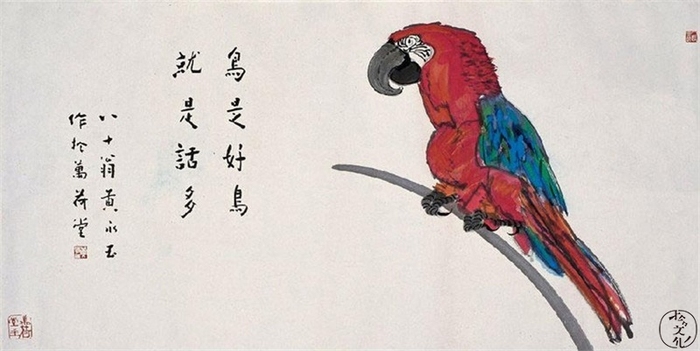 鳥是好鳥
就是話多
八十翁黄永玉
作於萬荷堂